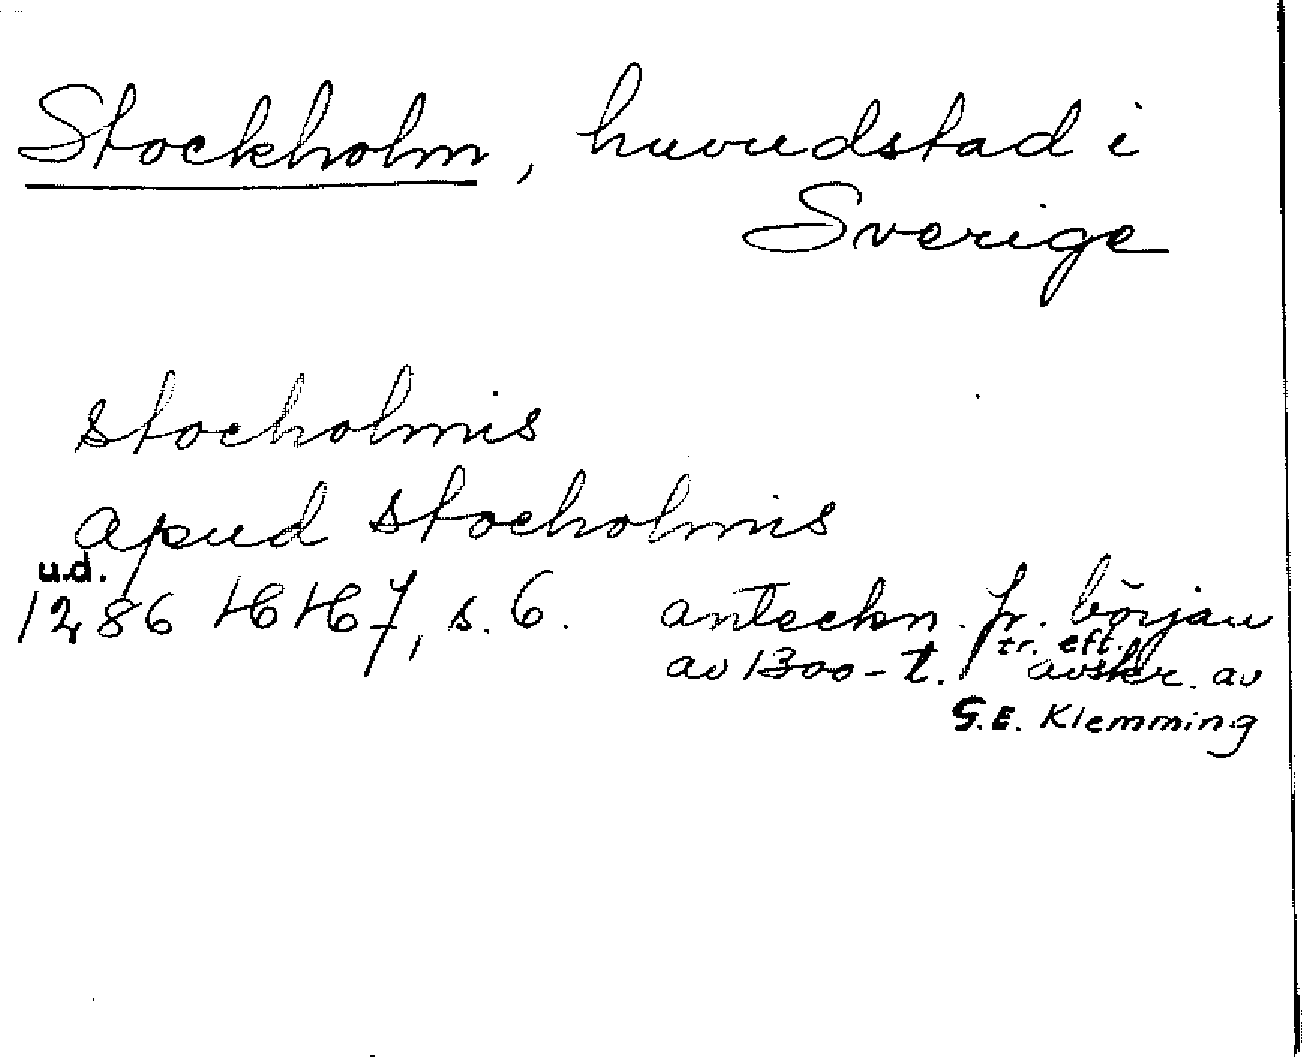 Stockholm, huvudstad i
Sverige
stocholmis
apud stocholmis
u.d.
1286 HH 7, s. 6. anteckn. fr. början
av 1300-t. tr. eft. avskr. av
G.E. Klemming